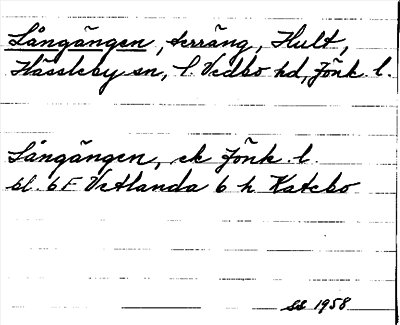 Långängen, terräng, Hult,
Hässleby sn, Ö. Vedbo hd, Jönk. l.
Långängen, ek Jönk. l.
bl. 6 F Vetlanda 6 h Katebo
SS 1958